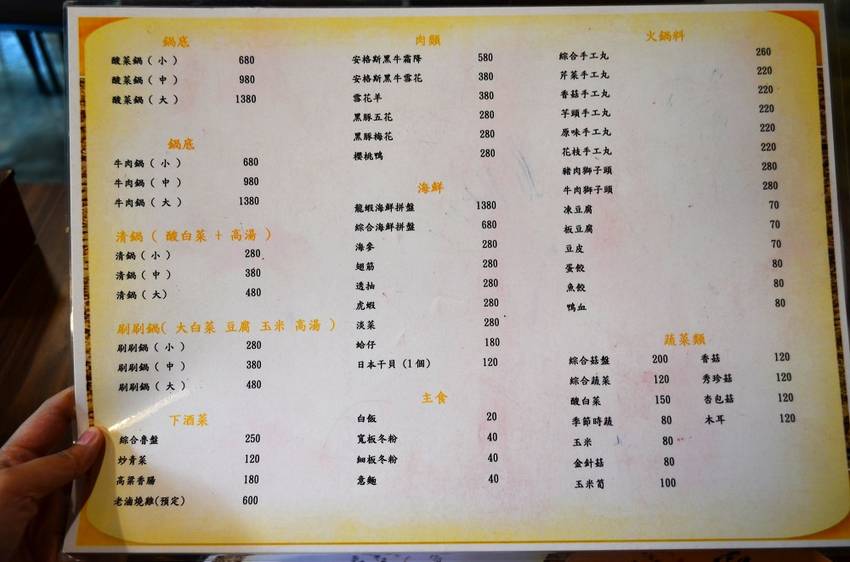 鍋底
酸菜鍋 ( 小 ) 680
酸菜鍋 ( 中 ) 980
酸菜鍋 ( 大 ) 1380
鍋底
牛肉鍋 ( 小 ) 680
牛肉鍋 ( 中 ) 980
牛肉鍋 ( 大 ) 1380
清鍋 ( 酸白菜 + 高湯 )
清鍋 ( 小 ) 280
清鍋 ( 中 ) 380
清鍋 ( 大 ) 480
刷刷鍋( 大白菜 豆腐 玉米 高湯 )
刷刷鍋 ( 小 ) 280
刷刷鍋 ( 中 ) 380
刷刷鍋 ( 大 ) 480
下酒菜
綜合魯盤 250
炒青菜 120
高粱香腸 180
老滷燒雞(預定) 600
肉類
安格斯黑牛霜降 580
安格斯黑牛雪花 380
雪花羊 380
黑豚五花 280
黑豚梅花 280
櫻桃鴨 280
海鮮
龍蝦海鮮拼盤 1380
綜合海鮮拼盤 680
海參 280
翅筋 280
透抽 280
虎蝦 280
淡菜 280
蛤仔 180
日本干貝 (1個) 120
主食
白飯 20
寬板冬粉 40
細板冬粉 40
意麵 40
火鍋料
綜合手工丸 260
芹菜手工丸 220
香菇手工丸 220
芋頭手工丸 220
原味手工丸 220
花枝手工丸 220
豬肉獅子頭 280
牛肉獅子頭 280
凍豆腐 70
板豆腐 70
豆皮 70
蛋餃 80
魚餃 80
鴨血 80
蔬菜類
綜合菇盤 200 香菇 120
綜合蔬菜 120 秀珍菇 120
酸白菜 150 杏包菇 120
季節時蔬 80 木耳 120
玉米 80
金針菇 80
玉米筍 100